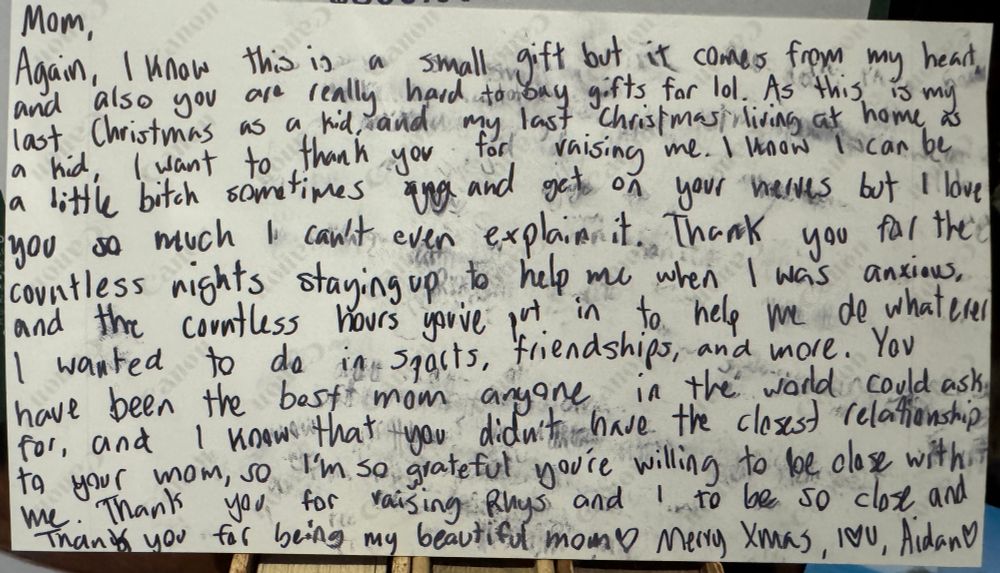 Mom,
Again, I know this is a small gift but it comes from my heart,
and also you are really hard to buy gifts for lol. As this is my
last Christmas as a kid, and my last Christmas living at home as
a kid, I want to thank you for raising me. I know I can be
a little bitch sometimes and get on your nerves but I love
you so much I can't even explain it. Thank you for the
countless nights staying up to help me when I was anxious,
and the countless hours you've put in to help me do whatever
I wanted to do in sports, friendships, and more. You
have been the best mom anyone in the world could ask
for, and I know that you didn't have the closest relationship
to your mom, so I'm so grateful you're willing to be close with
me. Thank you for raising Rhys and I to be so close and
Thank you for being my beautiful mom♡ Merry Xmas, I♡U, Aidan♡